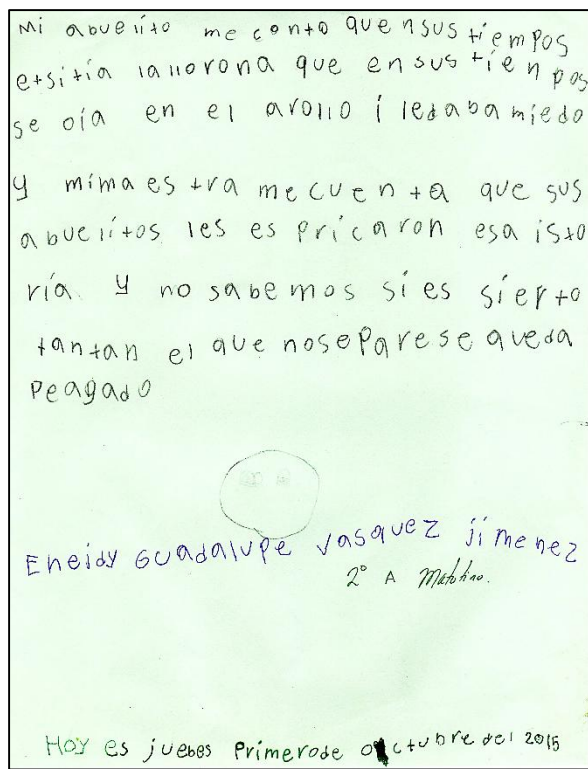 Mi abuelito me conto quensus tiempos
etsitía lallorona que ensus tienpos
se oía en el arollo i ledaba miedo
y mimaestra mecuenta que sus
abuelitos les espricaron esa isto
ría y no sabemos si es sierto
tantan el que nosepare se queda
peagado
Eneidy Guadalupe Vasquez jimenez
2° A Matutino.
Hoy es juebes Primerode octubre del 2015